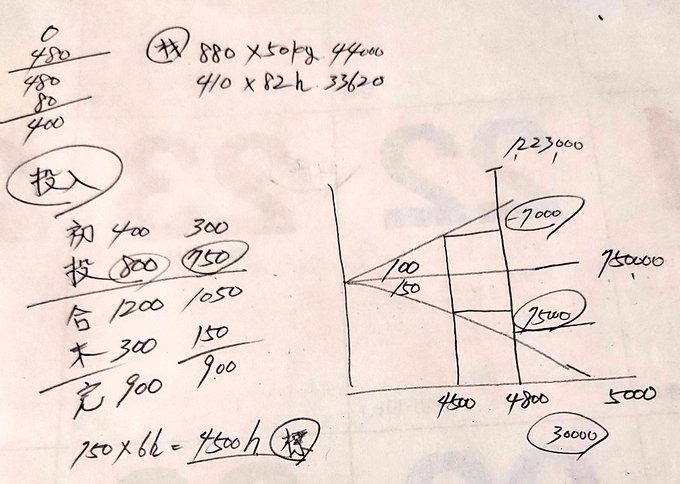 0
480
480
80
400
材 880×50kg 44000
410×82h 33620
投入
初 400 300
投 800 750
合 1200 1050
未 300 150
完 900 900
750×6h=4500h 標
1,223,000
-7000
100
750,000
150
75000
4500 4800 5000
30000